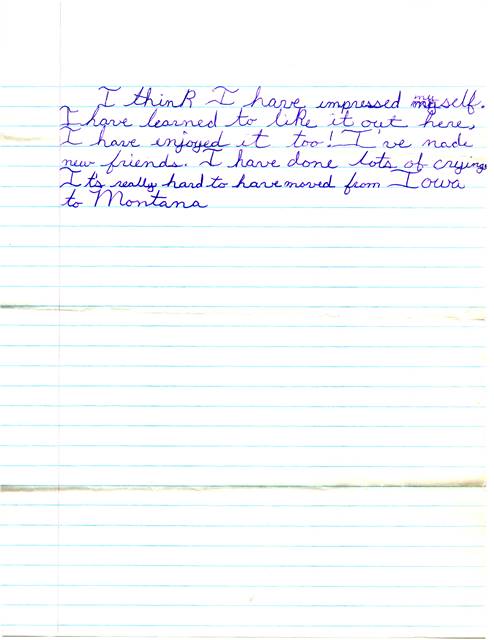 I think I have impressed myself.
I have learned to like it out here,
I have enjoyed it too! I've made
new friends. I have done lots of crying
It's really hard to have moved from Iowa
to Montana